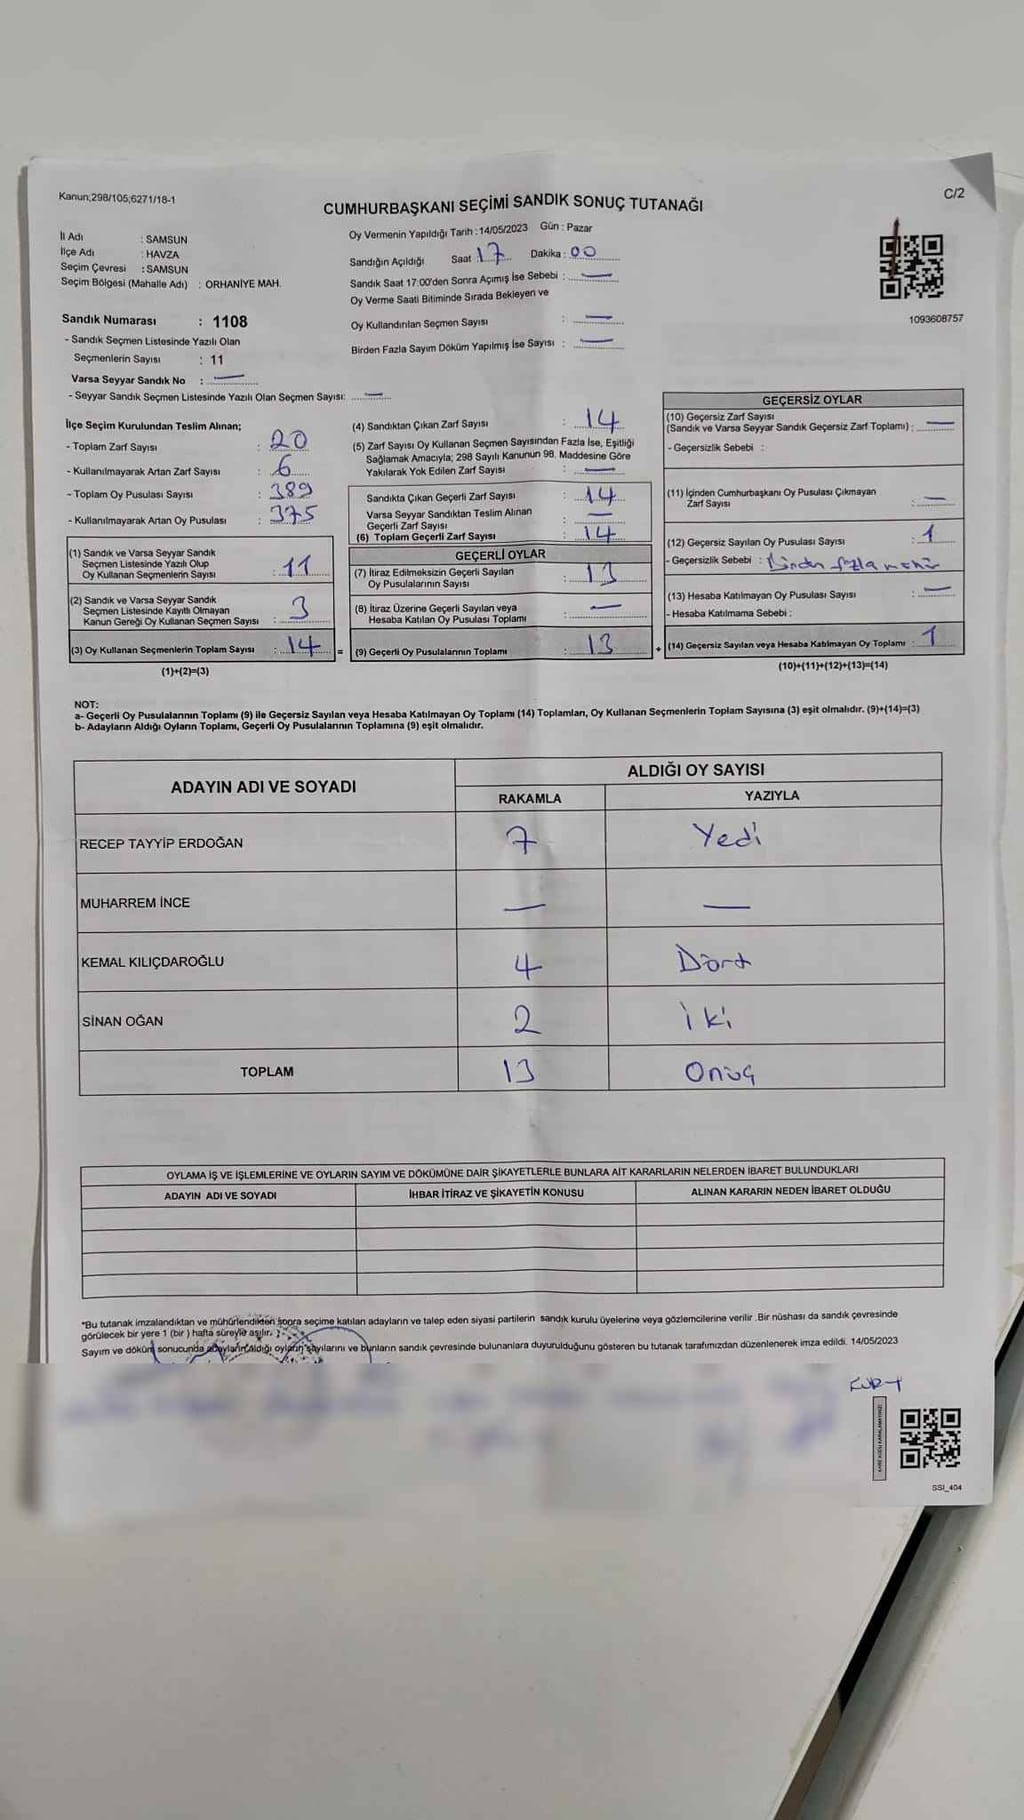 Kanun;298/105;6271/18-1
CUMHURBAŞKANI SEÇİMİ SANDIK SONUÇ TUTANAĞI
C/2
İl Adı : SAMSUN
İlçe Adı : HAVZA
Seçim Çevresi : SAMSUN
Seçim Bölgesi (Mahalle Adı) : ORHANİYE MAH.
Oy Vermenin Yapıldığı Tarih : 14/05/2023 Gün : Pazar
Sandığın Açıldığı Saat 17 Dakika : 00
Sandık Saat 17:00'den Sonra Açımış İse Sebebi : —
Oy Verme Saati Bitiminde Sırada Bekleyen ve
Oy Kullandırılan Seçmen Sayısı : —
Birden Fazla Sayım Döküm Yapılmış İse Sayısı : —
1093608757
Sandık Numarası : 1108
- Sandık Seçmen Listesinde Yazılı Olan
Seçmenlerin Sayısı : 11
Varsa Seyyar Sandık No : —
- Seyyar Sandık Seçmen Listesinde Yazılı Olan Seçmen Sayısı: —
İlçe Seçim Kurulundan Teslim Alınan;
- Toplam Zarf Sayısı : 20
- Kullanılmayarak Artan Zarf Sayısı : 6
- Toplam Oy Pusulası Sayısı : 389
- Kullanılmayarak Artan Oy Pusulası : 375
(1) Sandık ve Varsa Seyyar Sandık
Seçmen Listesinde Yazılı Olup
Oy Kullanan Seçmenlerin Sayısı : 11
(2) Sandık ve Varsa Seyyar Sandık
Seçmen Listesinde Kayıtlı Olmayan
Kanun Gereği Oy Kullanan Seçmen Sayısı : 3
(3) Oy Kullanan Seçmenlerin Toplam Sayısı : 14 =
(1)+(2)=(3)
(4) Sandıktan Çıkan Zarf Sayısı : 14
(5) Zarf Sayısı Oy Kullanan Seçmen Sayısından Fazla İse, Eşitliği
Sağlamak Amacıyla; 298 Sayılı Kanunun 98. Maddesine Göre
Yakılarak Yok Edilen Zarf Sayısı : —
Sandıkta Çıkan Geçerli Zarf Sayısı : 14
Varsa Seyyar Sandıktan Teslim Alınan
Geçerli Zarf Sayısı : —
(6) Toplam Geçerli Zarf Sayısı : 14
GEÇERLİ OYLAR
(7) İtiraz Edilmeksizin Geçerli Sayılan
Oy Pusulalarının Sayısı : 13
(8) İtiraz Üzerine Geçerli Sayılan veya
Hesaba Katılan Oy Pusulası Toplamı : —
(9) Geçerli Oy Pusulalarının Toplamı : 13 +
GEÇERSİZ OYLAR
(10) Geçersiz Zarf Sayısı
(Sandık ve Varsa Seyyar Sandık Geçersiz Zarf Toplamı) : —
- Geçersizlik Sebebi :
(11) İçinden Cumhurbaşkanı Oy Pusulası Çıkmayan
Zarf Sayısı : —
(12) Geçersiz Sayılan Oy Pusulası Sayısı : 1
- Geçersizlik Sebebi : Birden fazla mühür
(13) Hesaba Katılmayan Oy Pusulası Sayısı : —
- Hesaba Katılmama Sebebi :
(14) Geçersiz Sayılan veya Hesaba Katılmayan Oy Toplamı : 1
(10)+(11)+(12)+(13)=(14)
NOT:
a- Geçerli Oy Pusulalarının Toplamı (9) ile Geçersiz Sayılan veya Hesaba Katılmayan Oy Toplamı (14) Toplamları, Oy Kullanan Seçmenlerin Toplam Sayısına (3) eşit olmalıdır. (9)+(14)=(3)
b- Adayların Aldığı Oyların Toplamı, Geçerli Oy Pusulalarının Toplamına (9) eşit olmalıdır.
ADAYIN ADI VE SOYADI ALDIĞI OY SAYISI
RAKAMLA YAZIYLA
RECEP TAYYİP ERDOĞAN 7 Yedi
MUHARREM İNCE — —
KEMAL KILIÇDAROĞLU 4 Dört
SİNAN OĞAN 2 İki
TOPLAM 13 Onüç
OYLAMA İŞ VE İŞLEMLERİNE VE OYLARIN SAYIM VE DÖKÜMÜNE DAİR ŞİKAYETLERLE BUNLARA AİT KARARLARIN NELERDEN İBARET BULUNDUKLARI
ADAYIN ADI VE SOYADI İHBAR İTİRAZ VE ŞİKAYETİN KONUSU ALINAN KARARIN NEDEN İBARET OLDUĞU
"Bu tutanak imzalandıktan ve mühürlendikten sonra seçime katılan adayların ve talep eden siyasi partilerin sandık kurulu üyelerine veya gözlemcilerine verilir. Bir nüshası da sandık çevresinde
görülecek bir yere 1 (bir) hafta süreyle asılır.
Sayım ve döküm sonucunda adayların aldığı oyların sayılarını ve bunların sandık çevresinde bulunanlara duyurulduğunu gösteren bu tutanak tarafımızdan düzenlenerek imza edildi. 14/05/2023
KURT
SSI_404